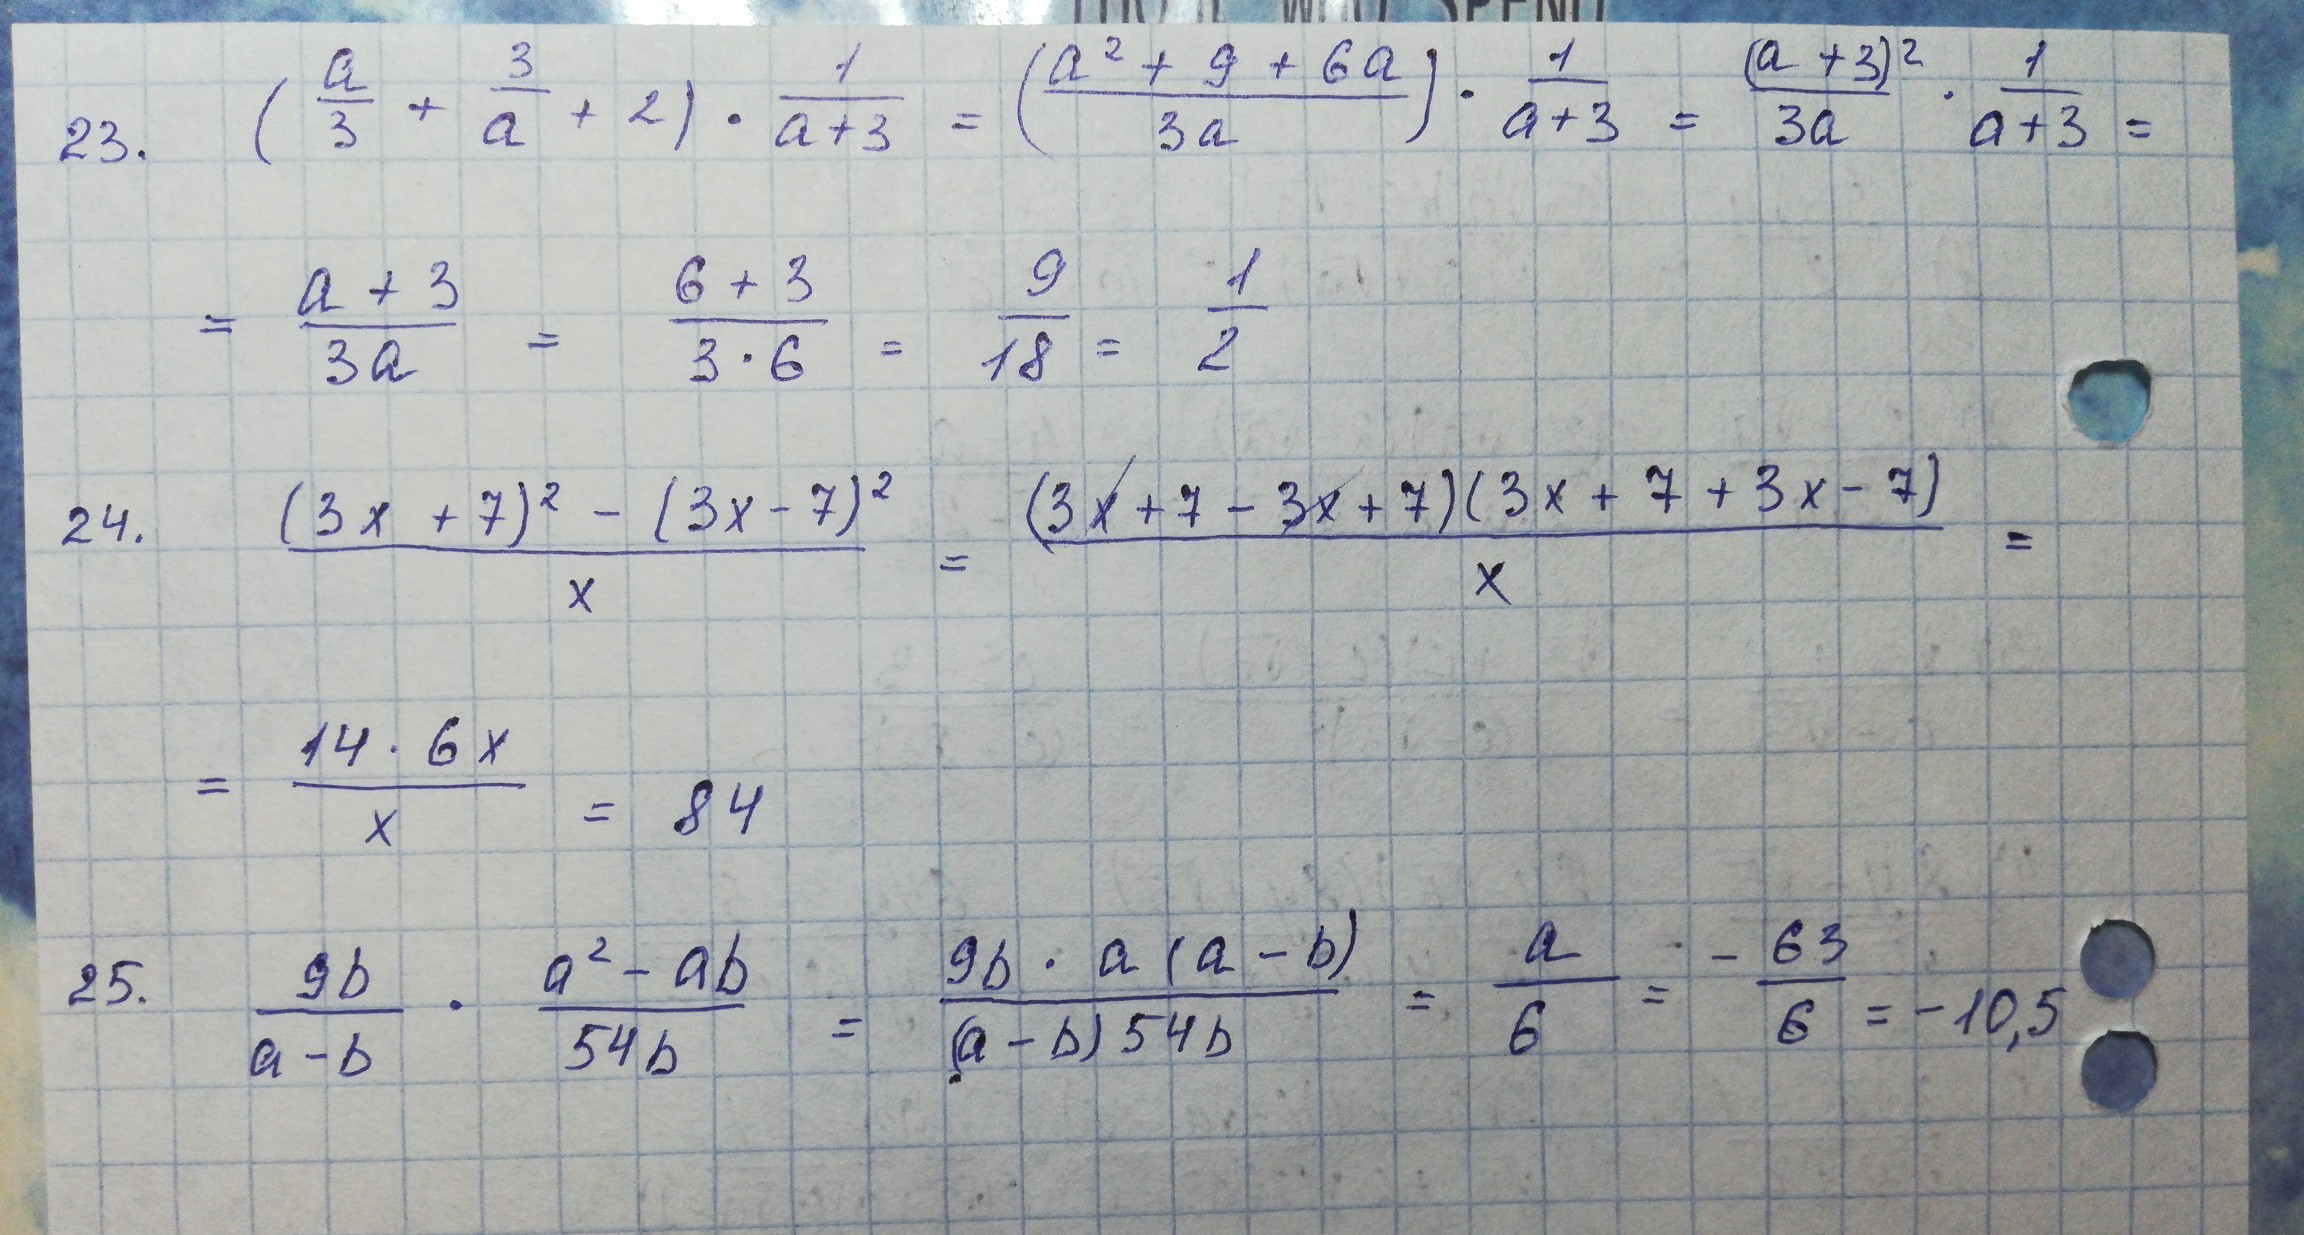 23. (a/3 + 3/a + 2) · 1/(a+3) = ((a² + 9 + 6a)/3a) · 1/(a+3) = (a+3)²/3a · 1/(a+3) =
= (a+3)/3a = (6+3)/(3·6) = 9/18 = 1/2
24. ((3x + 7)² - (3x - 7)²)/x = ((3x + 7 - 3x + 7)(3x + 7 + 3x - 7))/x =
= (14 · 6x)/x = 84
25. 9b/(a-b) · (a² - ab)/54b = (9b · a(a-b))/((a-b)54b) = a/6 = -63/6 = -10,5